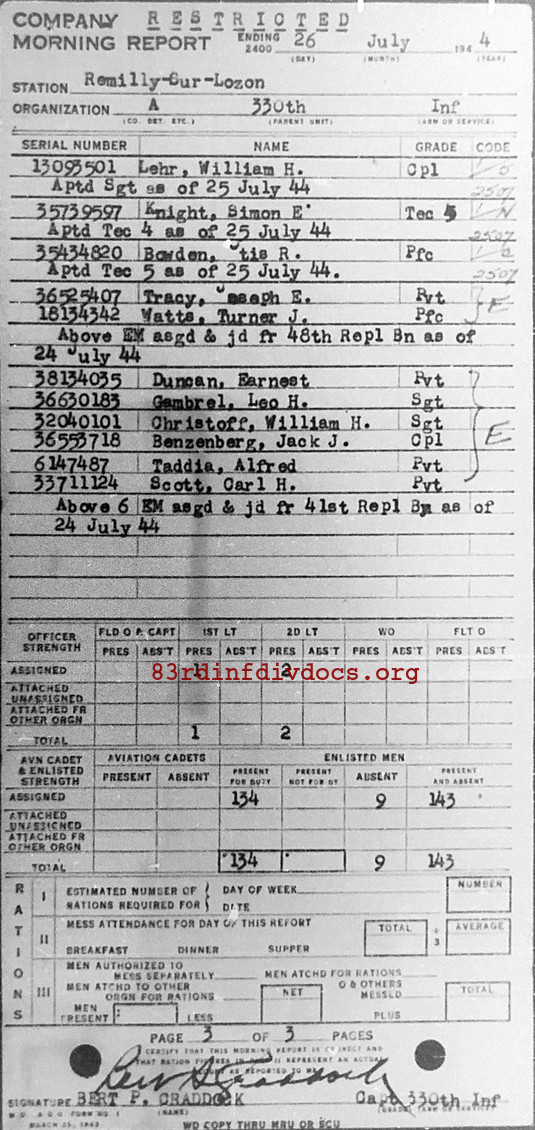 COMPANY RESTRICTED
MORNING REPORT ENDING 2400 26 July 1944
(DAY) (MONTH) (YEAR)
STATION Remilly-Sur-Lozon
ORGANIZATION A 330th Inf
(CO. DET. ETC.) (PARENT UNIT) (ARM OR SERVICE)
SERIAL NUMBER NAME GRADE CODE
13093501 Lehr, William H. Cpl
Aptd Sgt as of 25 July 44 2507
35739597 Knight, Simon E. Tec 5 N
Aptd Tec 4 as of 25 July 44 2507
35434820 Bowden, tis R. Pfc
Aptd Tec 5 as of 25 July 44. 2507
36525407 Tracy, Joseph E. Pvt
18134342 Watts, Turner J. Pfc E
Above EM asgd & jd fr 48th Repl Bn as of
24 July 44
38134035 Duncan, Earnest Pvt
36630183 Gambrel, Leo H. Sgt
32040101 Christoff, William H. Sgt
36553718 Benzenberg, Jack J. Cpl E
6147487 Taddia, Alfred Pvt
33711124 Scott, Carl H. Pvt
Above 6 EM asgd & jd fr 41st Repl Bn as of
24 July 44
OFFICER STRENGTH FLD O & CAPT 1ST LT 2D LT WO FLT O
PRES ABS'T PRES ABS'T PRES ABS'T PRES ABS'T PRES ABS'T
ASSIGNED 1 2
83rdinfdivdocs.org
ATTACHED UNASSIGNED
ATTACHED FR OTHER ORGN
TOTAL 1 2
AVN CADET & ENLISTED STRENGTH AVIATION CADETS ENLISTED MEN
PRESENT ABSENT PRESENT FOR DUTY PRESENT NOT FOR DY ABSENT PRESENT AND ABSENT
ASSIGNED 134 9 143
ATTACHED UNASSIGNED
ATTACHED FR OTHER ORGN
TOTAL 134 9 143
RATIONS
I ESTIMATED NUMBER OF RATIONS REQUIRED FOR DAY OF WEEK DATE NUMBER
II MESS ATTENDANCE FOR DAY OF THIS REPORT TOTAL ÷ 3 AVERAGE
BREAKFAST DINNER SUPPER
III MEN AUTHORIZED TO MESS SEPARATELY MEN ATCHD FOR RATIONS
MEN ATCHD TO OTHER ORGN FOR RATIONS NET O & OTHERS MESSED TOTAL
MEN PRESENT LESS PLUS
PAGE 3 OF 3 PAGES
I CERTIFY THAT THIS MORNING REPORT IS CORRECT AND
THAT RATION FIGURES IN PART II REPRESENT AN ACTUAL
COUNT AS REPORTED TO ME
Bert P Craddock
SIGNATURE BERT P. CRADDOCK Capt 330th Inf
W D A G O FORM NO 1 (NAME) (GRADE) (ARM OR SERVICE)
MARCH 25, 1943 WD COPY THRU MRU OR SCU